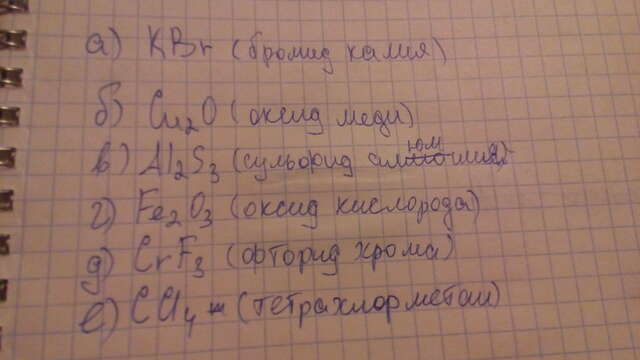 а) KBr (бромид калия)
б) Cu₂O (оксид меди)
в) Al₂S₃ (сульфид алюминия)
г) Fe₂O₃ (оксид кислорода)
д) CrF₃ (фторид хрома)
е) CCl₄ - (тетрахлорметан)